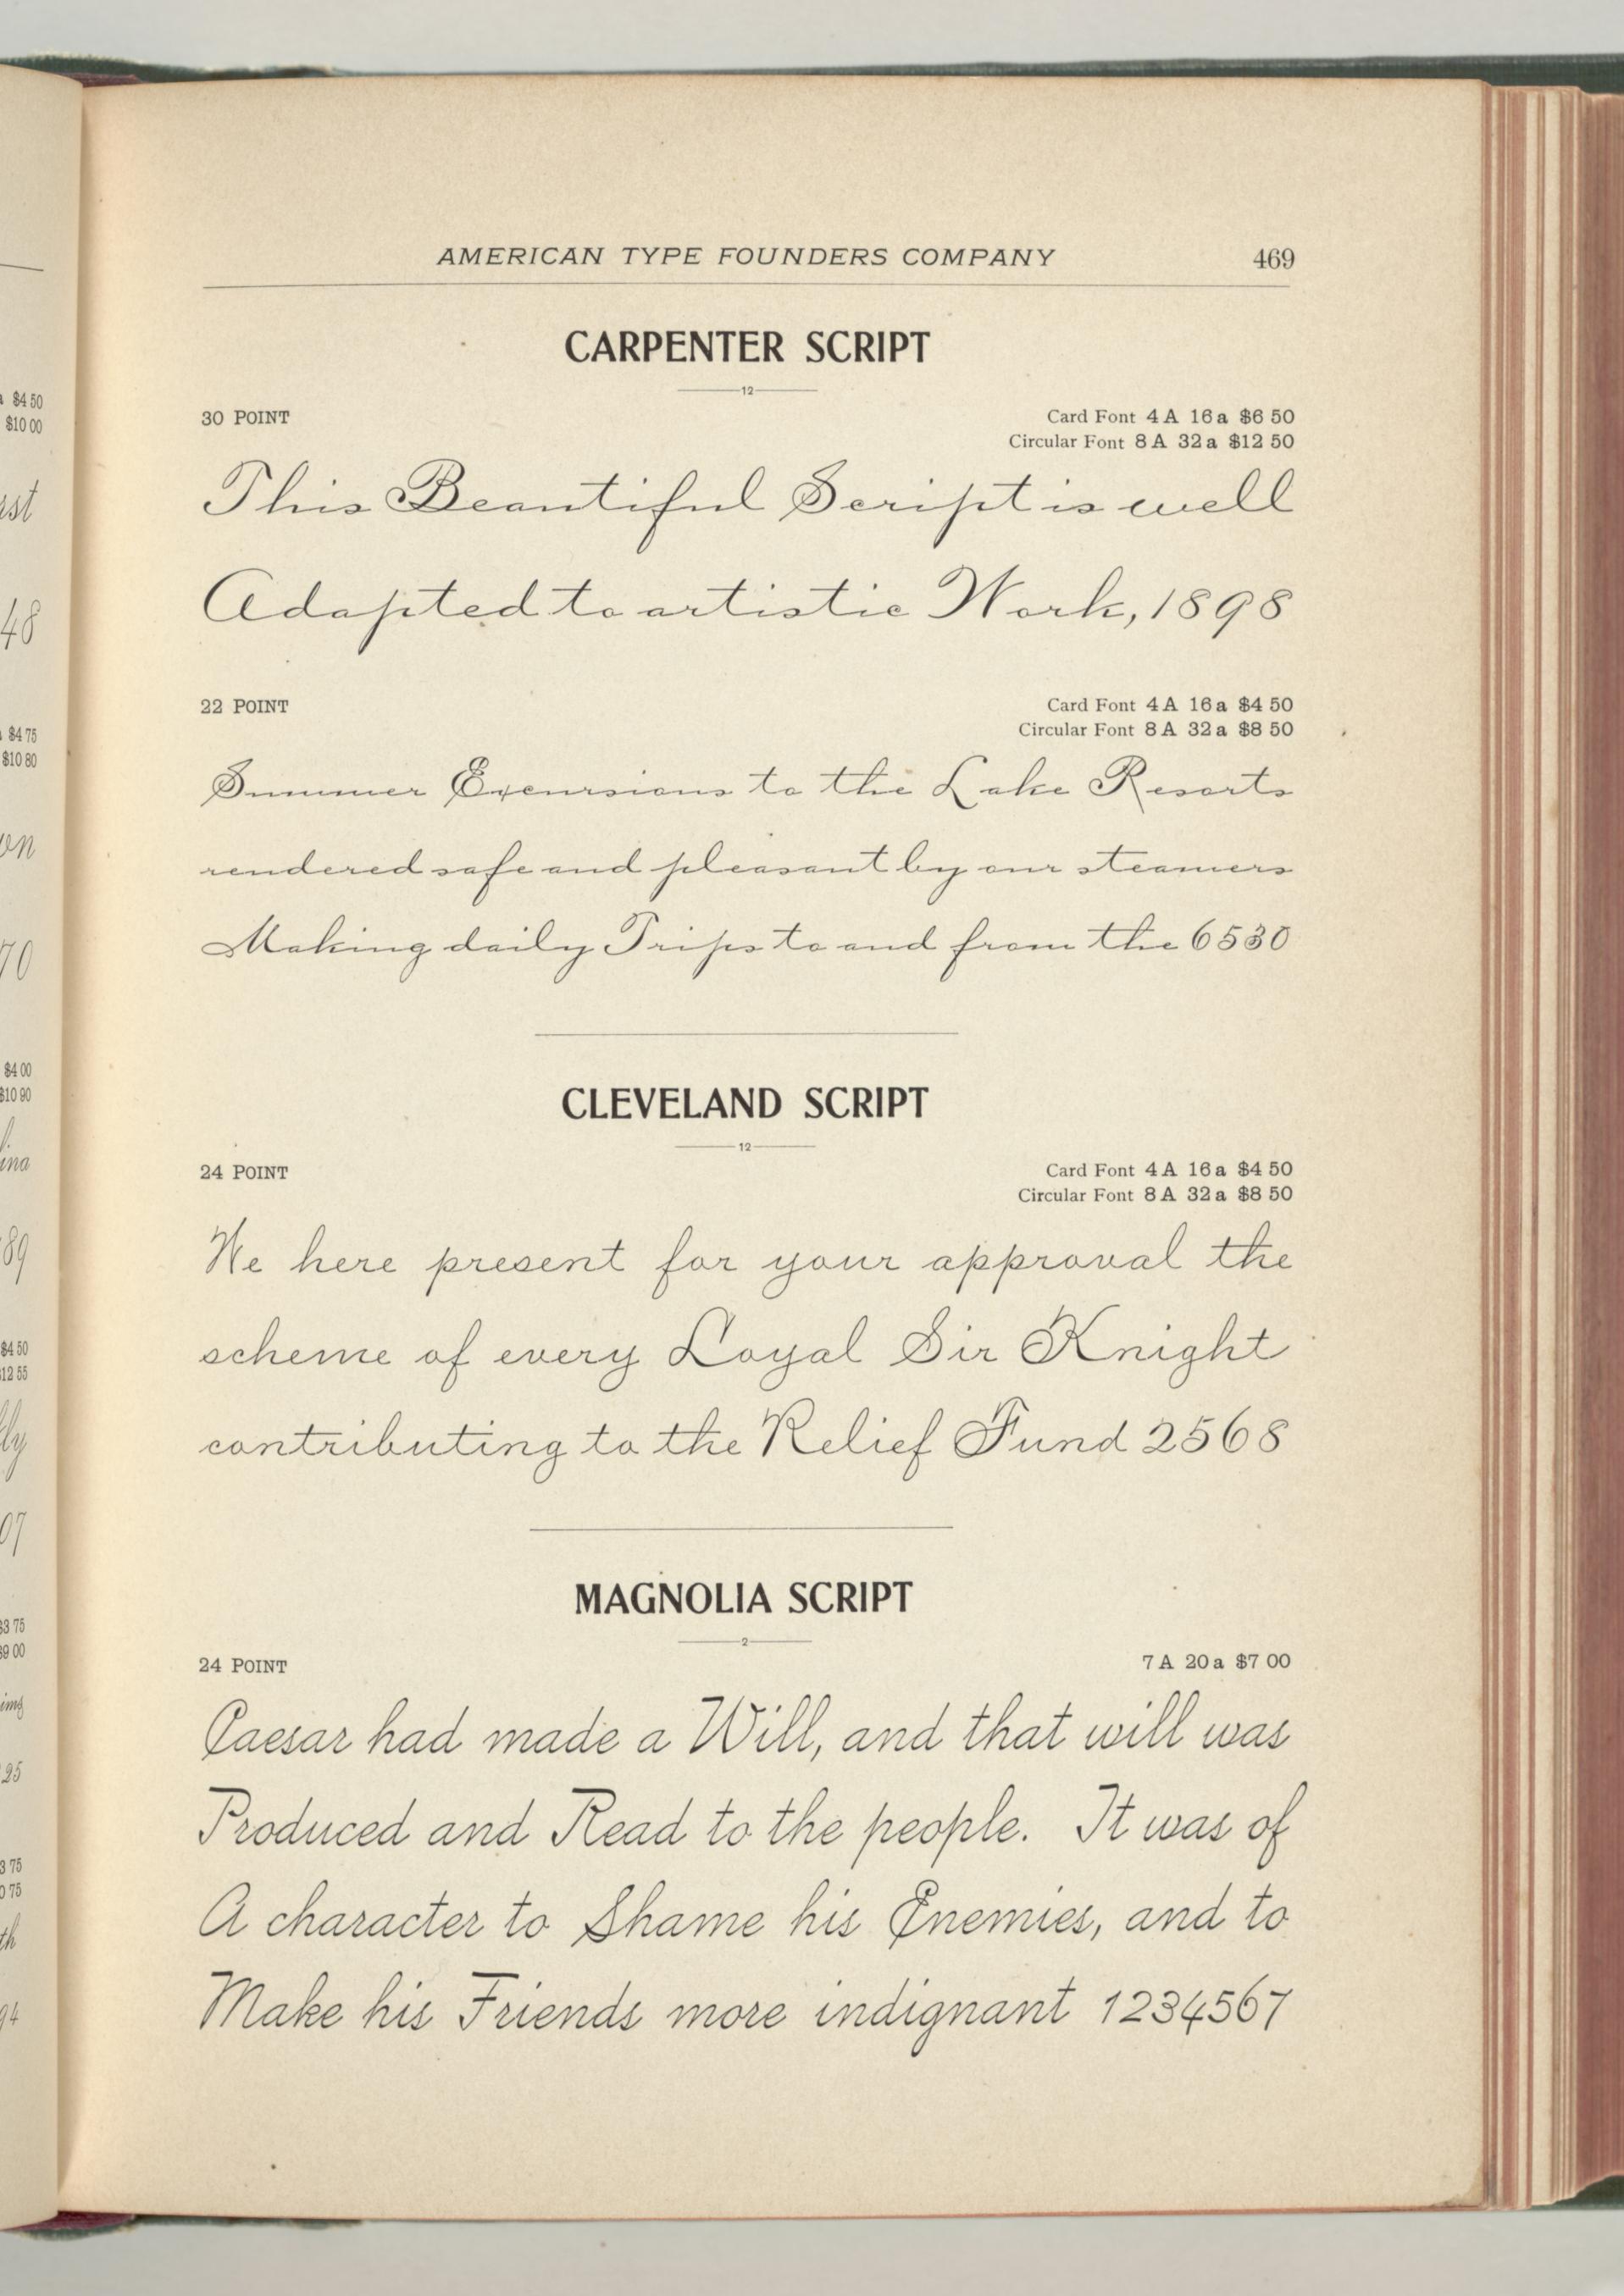 AMERICAN TYPE FOUNDERS COMPANY 469
CARPENTER SCRIPT
12
30 POINT
Card Font 4 A 16 a $6 50
Circular Font 8 A 32 a $12 50
This Beautiful Script is well
Adapted to artistic Work, 1898
22 POINT
Card Font 4 A 16 a $4 50
Circular Font 8 A 32 a $8 50
Summer Excursions to the Lake Resorts
rendered safe and pleasant by our steamers
Making daily Trips to and from the 6530
CLEVELAND SCRIPT
12
24 POINT
Card Font 4 A 16 a $4 50
Circular Font 8 A 32 a $8 50
We here present for your approval the
scheme of every Loyal Sir Knight
contributing to the Relief Fund 2568
MAGNOLIA SCRIPT
2
24 POINT
7 A 20 a $7 00
Caesar had made a Will, and that will was
Produced and Read to the people. It was of
A character to Shame his Enemies, and to
Make his Friends more indignant 1234567